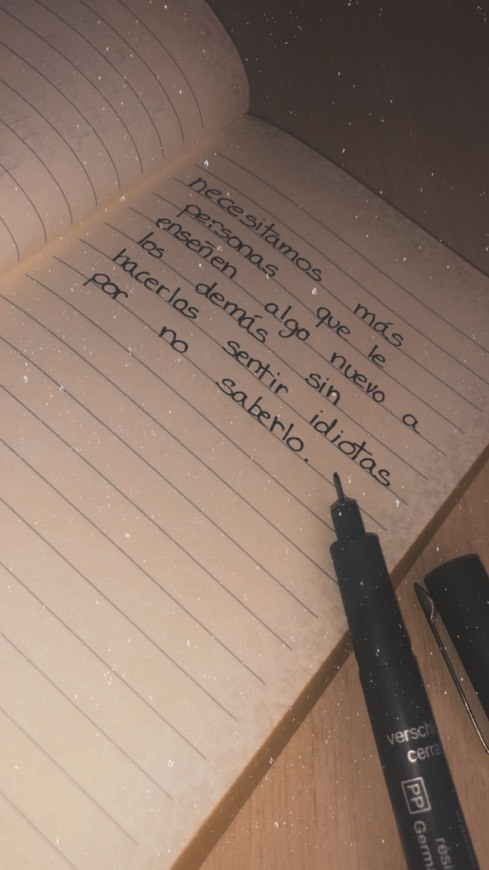 necesitamos más
personas que le
enseñen algo nuevo a
los demás sin
hacerlos sentir idiotas
por no saberlo.
versch
cerra
PP
Germa
rési